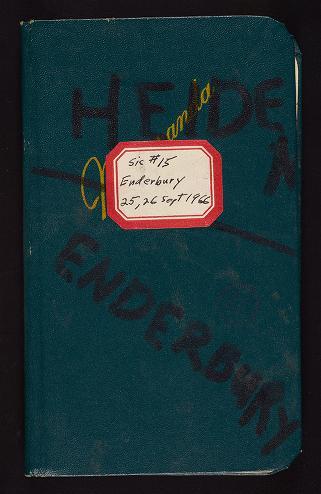 HEIDE
M
Memoranda
Sic #15
Enderbury
25, 26 Sept 1966
ENDERBURY